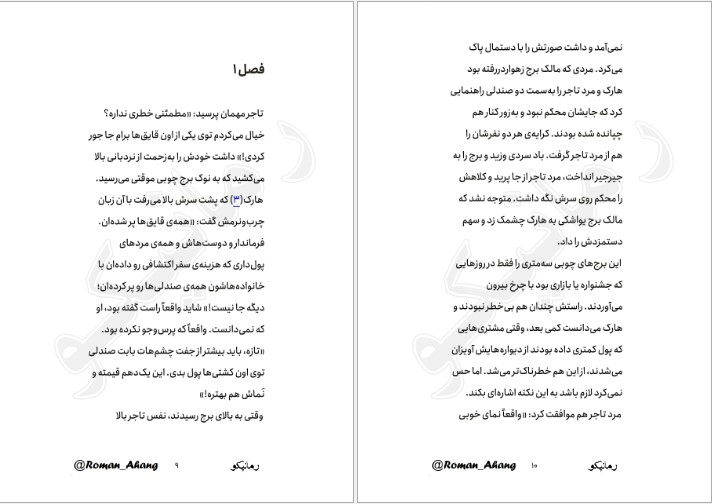 فصل ۱
تاجر مهمان پرسید: «مطمئنی خطری نداره؟
خیال می‌کردم توی یکی از اون قایق‌ها برام جا جور
کردی!» داشت خودش را به‌زحمت از نردبانی بالا
می‌کشید که به نوک برج چوبی موقتی می‌رسید.
هارک(۳) که پشت سرش بالا می‌رفت با آن زبان
چرب‌ونرمش گفت: «همه‌ی قایق‌ها پر شده‌ان.
فرماندار و دوست‌هاش و همه‌ی مردهای
پول‌داری که هزینه‌ی سفر اکتشافی رو داده‌ان با
خانواده‌هاشون همه‌ی صندلی‌ها رو پر کرده‌ان؛
دیگه جا نیست!» شاید واقعاً راست گفته بود، او
که نمی‌دانست. واقعاً که پرس‌وجو نکرده بود.
«تازه، باید بیشتر از جفت چشم‌هات بابت صندلی
توی اون کشتی‌ها پول بدی. این یک‌دهم قیمته و
نَماش هم بهتره!»
وقتی به بالای برج رسیدند، نفس تاجر بالا
@Roman_Ahang ۹ رمانیکو
نمی‌آمد و داشت صورتش را با دستمال پاک
می‌کرد. مردی که مالک برج زهواردررفته بود
هارک و مرد تاجر را به‌سمت دو صندلی راهنمایی
کرد که جایشان محکم نبود و به‌زور کنار هم
چپانده شده بودند. کرایه‌ی هر دو نفرشان را
هم از مرد تاجر گرفت. باد سردی وزید و برج را به
جیرجیر انداخت، مرد تاجر از جا پرید و کلاهش
را محکم روی سرش نگه داشت. متوجه نشد که
مالک برج یواشکی به هارک چشمک زد و سهم
دستمزدش را داد.
این برج‌های چوبی سه‌متری را فقط در روزهایی
که جشنواره یا بازاری بود با چرخ بیرون
می‌آوردند. راستش چندان هم بی‌خطر نبودند و
هارک می‌دانست کمی بعد، وقتی مشتری‌هایی
که پول کمتری داده بودند از دیواره‌هایش آویزان
می‌شدند، از این هم خطرناک‌تر می‌شد. اما حس
نمی‌کرد لازم باشد به این نکته اشاره‌ای بکند.
مرد تاجر هم موافقت کرد: «واقعاً نمای خوبی
@Roman_Ahang ۱۰ رمانیکو